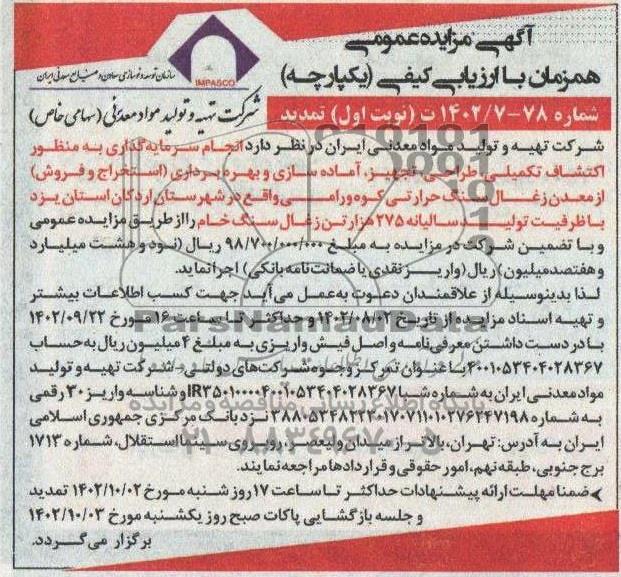 آگهی مزایده عمومی
همزمان با ارزیابی کیفی (یکپارچه)
شماره ۷۸-۱۴۰۲/۷ ت (نوبت اول) تمدید
IMPASCO
سازمان توسعه و نوسازی معادن و صنایع معدنی ایران
شرکت تهیه و تولید مواد معدنی (سهامی خاص)
شرکت تهیه و تولید مواد معدنی ایران در نظر دارد انجام سرمایه‌گذاری به منظور
اکتشاف تکمیلی، طراحی، تجهیز، آماده سازی و بهره برداری (استخراج و فروش)
از معدن زغال سنگ حرارتی کوه ورامی واقع در شهرستان اردکان استان یزد
با ظرفیت تولید سالیانه ۲۷۵ هزار تن زغال سنگ خام را از طریق مزایده عمومی
و با تضمین شرکت در مزایده به مبلغ ۹۸/۷۰۰/۰۰۰/۰۰۰ ریال (نود و هشت میلیارد
و هفتصد میلیون) ریال (واریز نقدی یا ضمانت نامه بانکی) اجرا نماید.
لذا بدینوسیله از علاقمندان دعوت به عمل می‌آید جهت کسب اطلاعات بیشتر
و تهیه اسناد مزایده از تاریخ ۱۴۰۲/۰۸/۰۲ و حداکثر تا ساعت ۱۶ مورخ ۱۴۰۲/۰۹/۲۲
با در دست داشتن معرفی نامه و اصل فیش واریزی به مبلغ ۴ میلیون ریال به حساب
۴۰۰۱۰۵۳۴۰۴۰۲۸۳۶۷ با عنوان تمرکز وجوه شرکت‌های دولتی و شرکت تهیه و تولید
مواد معدنی ایران به شماره شبا و شناسه واریز ۳۰ رقمی
به شماره نزد بانک مرکزی جمهوری اسلامی
ایران به آدرس: تهران، بالاتر از میدان ولیعصر، روبروی سینما استقلال، شماره ۱۷۱۳
برج جنوبی، طبقه نهم، امور حقوقی و قراردادها مراجعه نمایند.
ضمنا مهلت ارائه پیشنهادات حداکثر تا ساعت ۱۷ روز شنبه مورخ ۱۴۰۲/۱۰/۰۲ تمدید
و جلسه بازگشایی پاکات صبح روز یکشنبه مورخ ۱۴۰۲/۱۰/۰۳
برگزار می‌گردد.
ParsNamadData